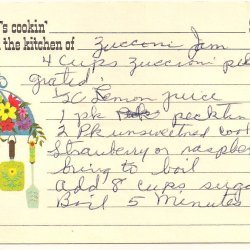 's cookin'
the kitchen of Zucconi Jam
4 Cups Zuccioni pee
grated.
1/2 C Lemon juice
1 pk pecktin
2 Pk unsweetned cool
Strawberry or raspber
bring to boil
add 8 cups suga
Boil 5 Minutes